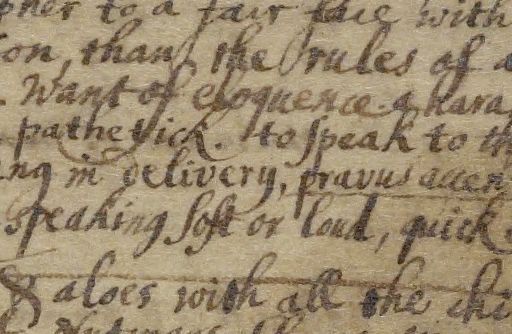 to a fair face with
than the rules of a
Want of eloquence. a hara
pathetick. to speak to th
ing in delivery, pravus accen
speaking soft or loud, quick
& aloes with all the chi